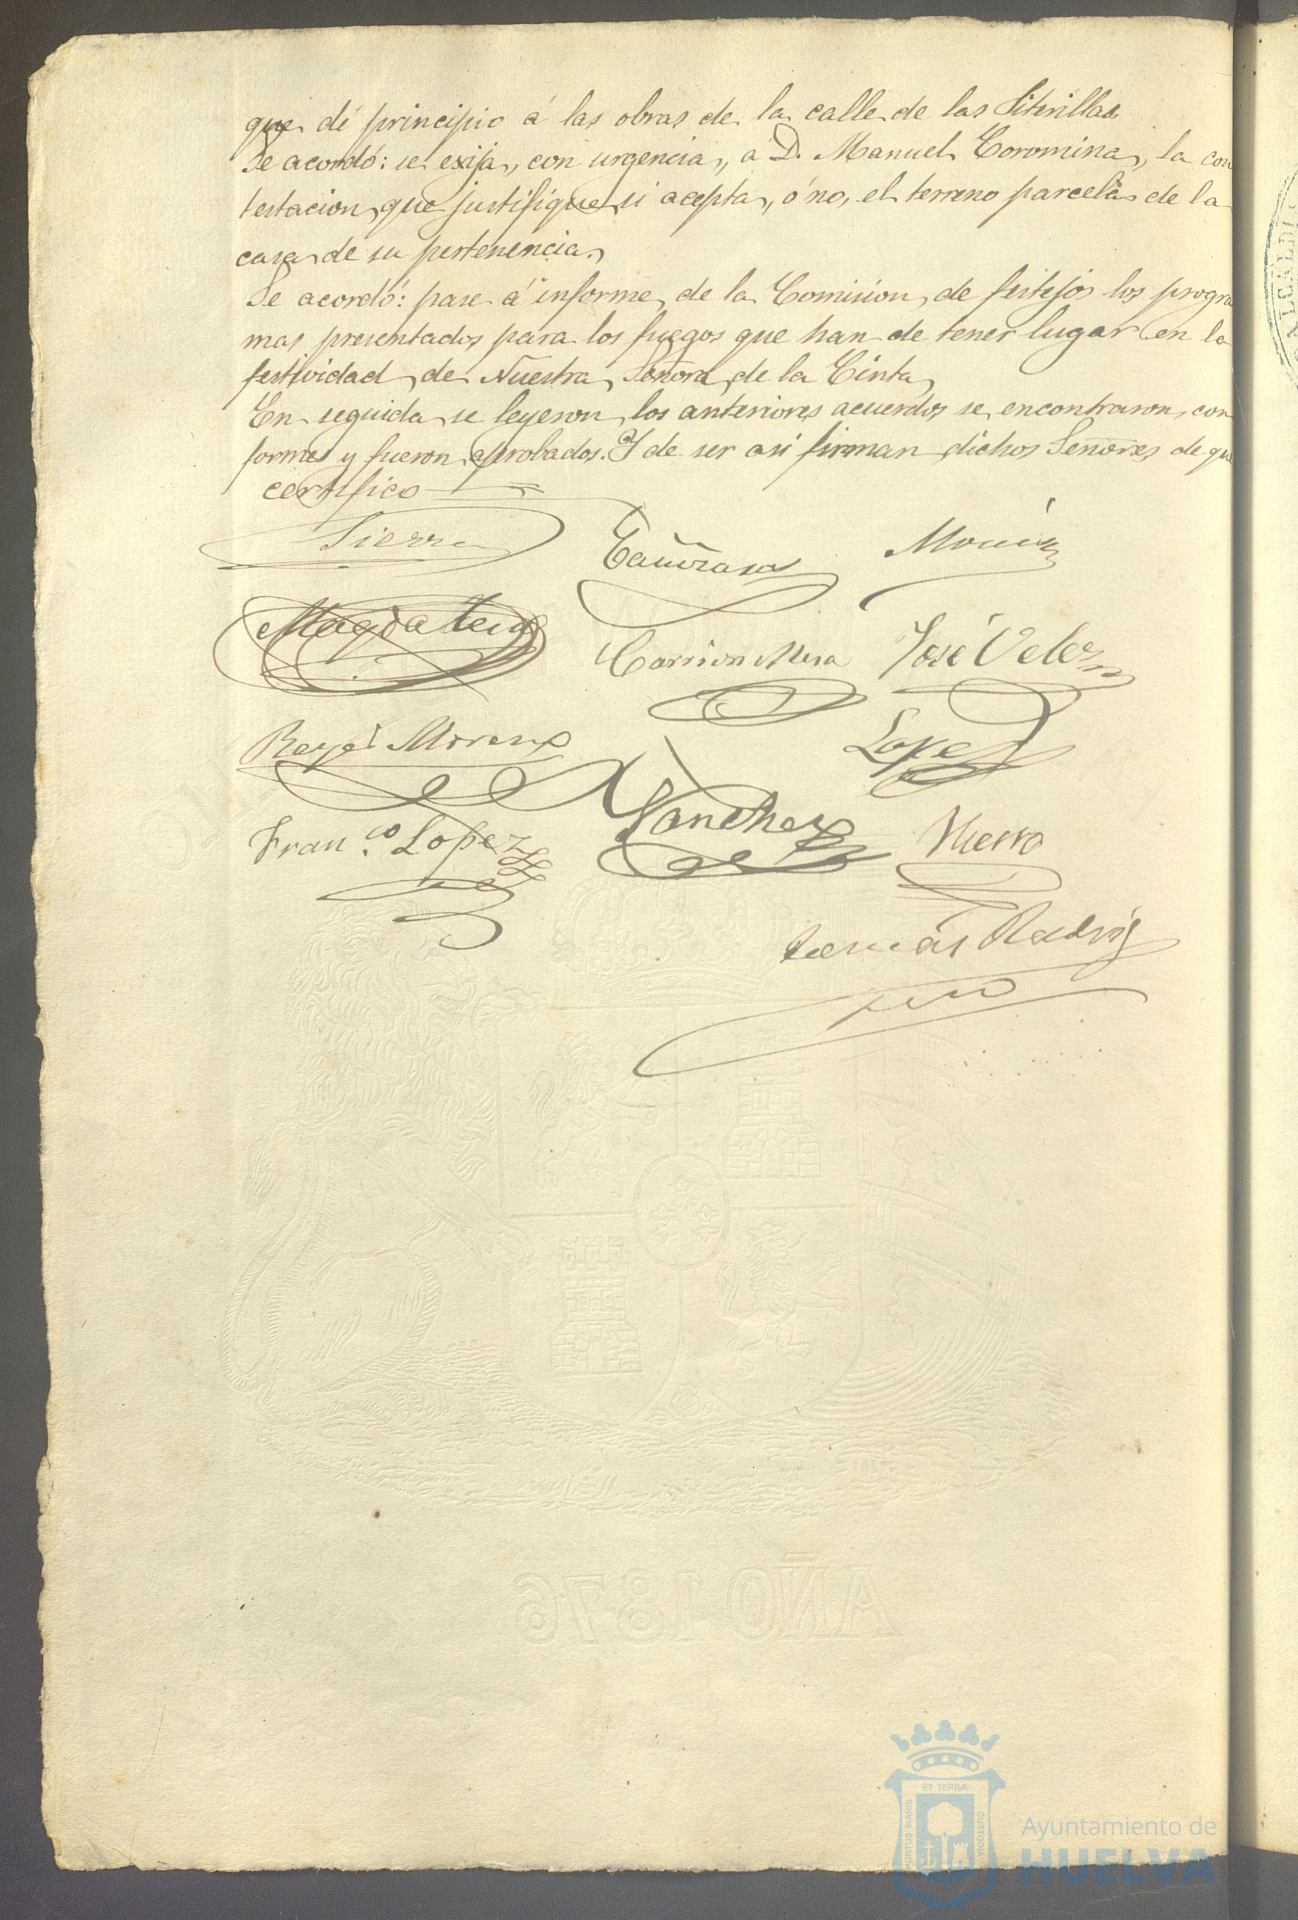 que dé principio á las obras de la calle de las Siterillas
Se acordó: se exija, con urgencia, a D. Manuel Coromina, la con
testacion que justifique si acepta, ó no, el terreno parcela de la
casa de su pertenencia.
Se acordó: pase á informe de la Comision de festejos los progra
mas presentados para los fuegos que han de tener lugar en la
festividad de Nuestra Señora de la Cinta
En seguida se leyeron los anteriores acuerdos se encontraron con
formes y fueron aprobados. Y de ser asi firman dichos Señores de que
certifico
Sierra
Garrion Mesa José Velez
Reyes Moreno Lopez
Fran.co Lopez Sanchez Hierro
Tomás Rodrig
AÑO 1876
ET TERRÆ
PORTUS MARIS
CUSTODIA
Ayuntamiento de
HUELVA